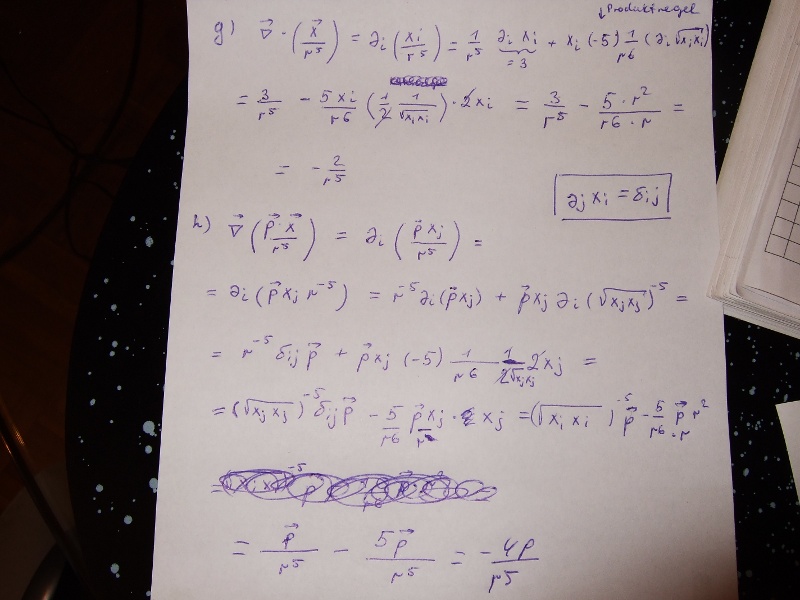 ↓Produktregel
g) ∇⃗ · (x⃗/r⁵) = ∂i (xi/r⁵) = 1/r⁵ ∂i xi + xi (-5) 1/r⁶ (∂i √xixi)
= 3
= 3/r⁵ - 5xi/r⁶ (1/2 1/√xixi) · 2xi = 3/r⁵ - 5·r²/r⁶·r =
= - 2/r⁵
∂j xi = δij
h) ∇⃗ (p⃗·x⃗/r⁵) = ∂i (p⃗xj/r⁵) =
= ∂i (p⃗xj r⁻⁵) = r⁻⁵ ∂i (p⃗xj) + p⃗xj ∂i (√xjxj)⁻⁵ =
= r⁻⁵ δij p⃗ + p⃗xj (-5) 1/r⁶ 1/2√xjxj 2xj =
= (√xjxj)⁻⁵ δij p⃗ - 5/r⁶ p⃗xj/r · xj = (√xixi)⁻⁵ p⃗ - 5/r⁶ p⃗r²/r
= p⃗/r⁵ - 5p⃗/r⁵ = -4p/r⁵